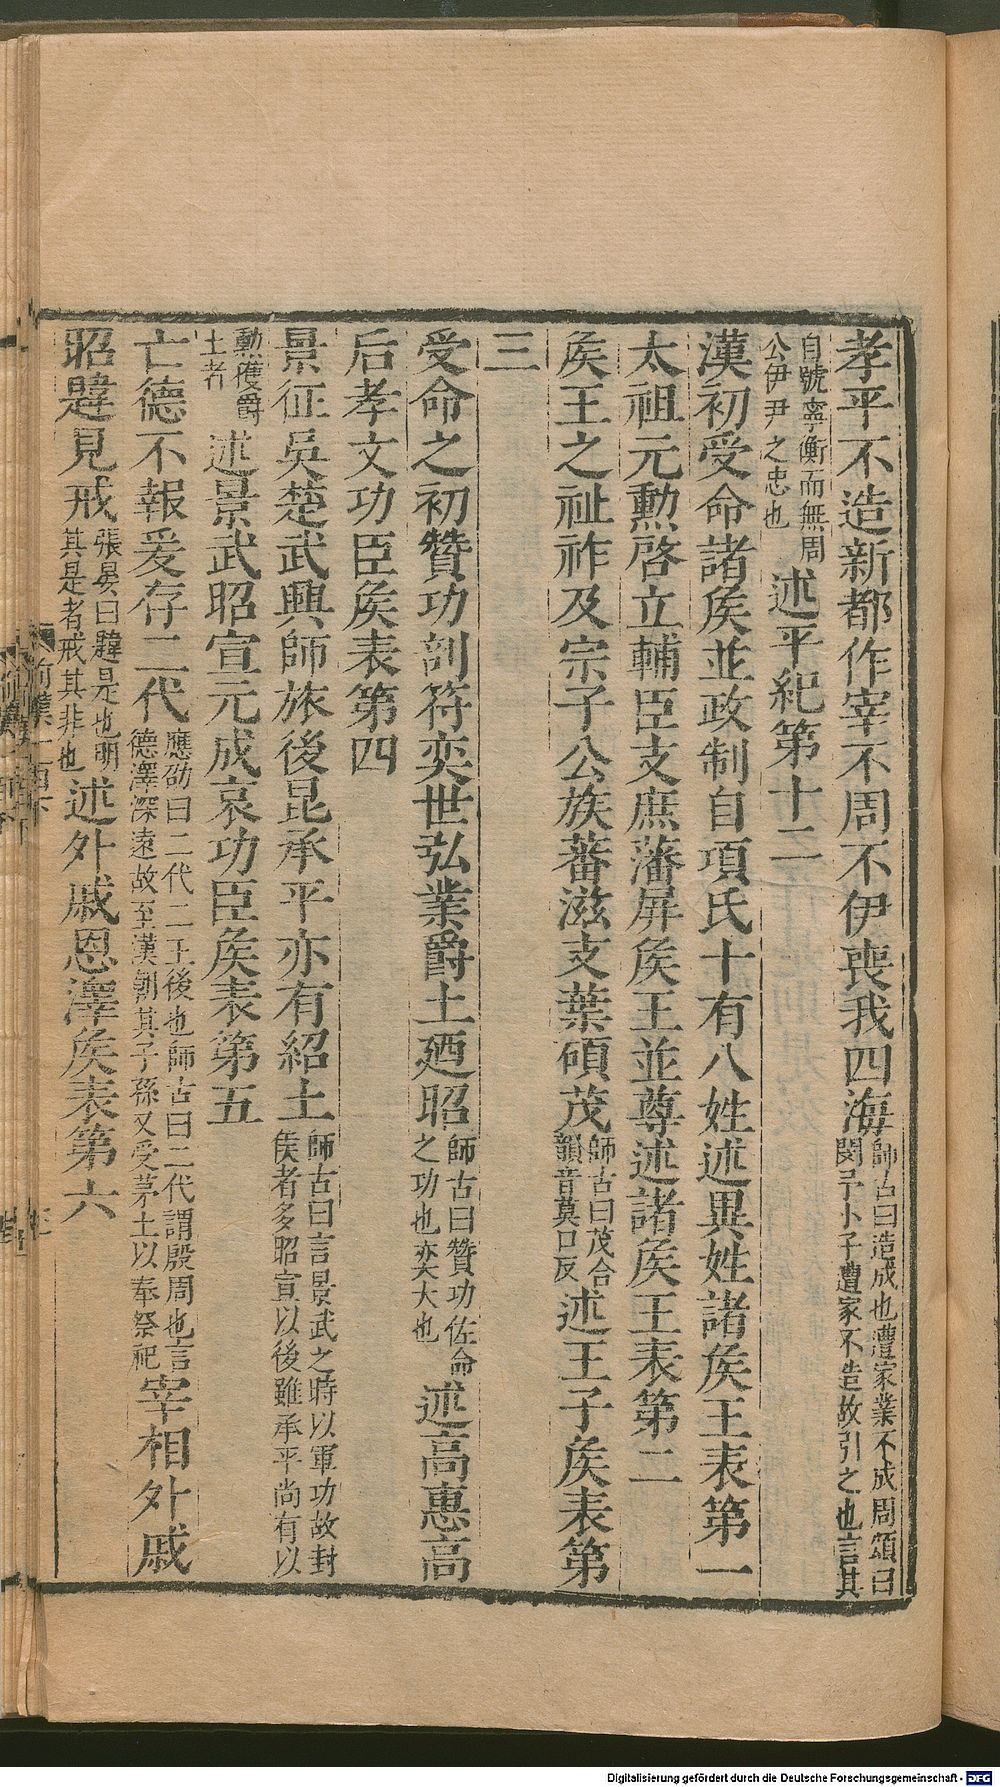 孝平不造新都作宰不周不伊喪我四海師古曰造成也遭家業不成周頌曰閔予小子遭家不造故引之也言其
自號宰衡而無周公伊尹之忠也述平紀第十二
漢初受命諸矦並政制自項氏十有八姓述異姓諸矦王表第一
太祖元勲啓立輔臣支庶藩屏矦王並尊述諸矦王表第二
矦王之祉祚及宗子公族蕃滋支葉碩茂師古曰茂合韻音莫口反述王子矦表第
三
受命之初贊功剖符奕世弘業爵土廼昭師古曰贊功佐命之功也奕大也述高惠高
后孝文功臣矦表第四
景征吳楚武興師旅後昆承平亦有紹土師古曰言景武之時以軍功故封矦者多昭宣以後雖承平尚有以
勲獲爵土者述景武昭宣元成哀功臣矦表第五
亡德不報爰存二代應劭曰二代二王後也師古曰二代謂殷周也言德澤深遠故至漢朝其子孫又受茅土以奉祭祀宰相外戚
昭韙見戒張晏曰韙是也明其是者戒其非也述外戚恩澤矦表第六
Digitalisierung gefördert durch die Deutsche Forschungsgemeinschaft - DFG